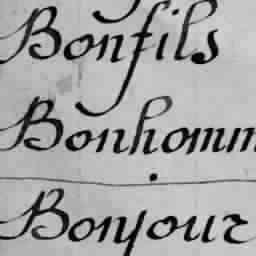 Bonfils
Bonhomm
Bonjour